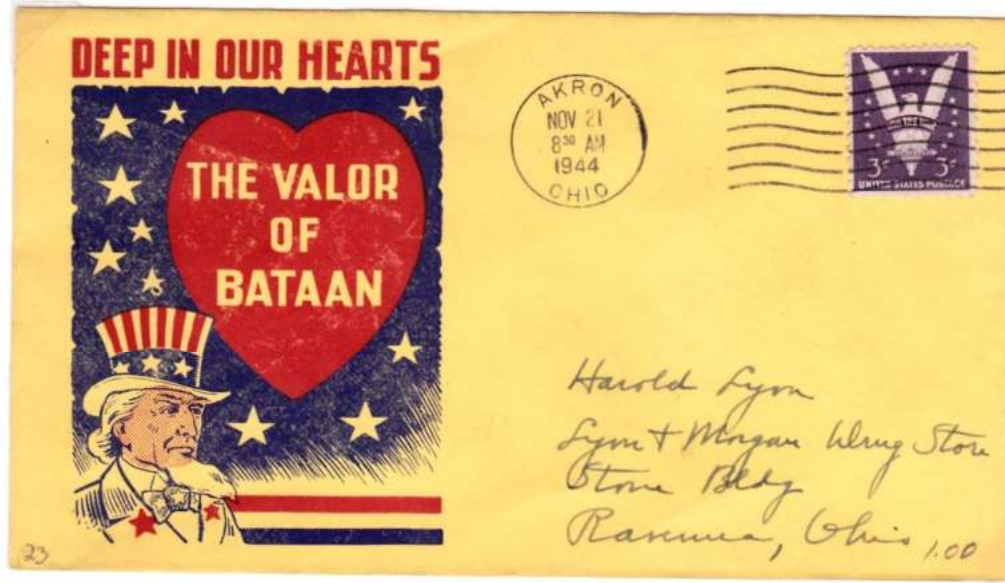 DEEP IN OUR HEARTS
THE VALOR
OF
BATAAN
AKRON
NOV 21
8 30 AM
1944
OHIO
3¢ 3¢
UNITED STATES POSTAGE
Harold Lyon
Lyon & Morgan Drug Store
Stone Bldg
Ravenna, Ohio
1.00
23